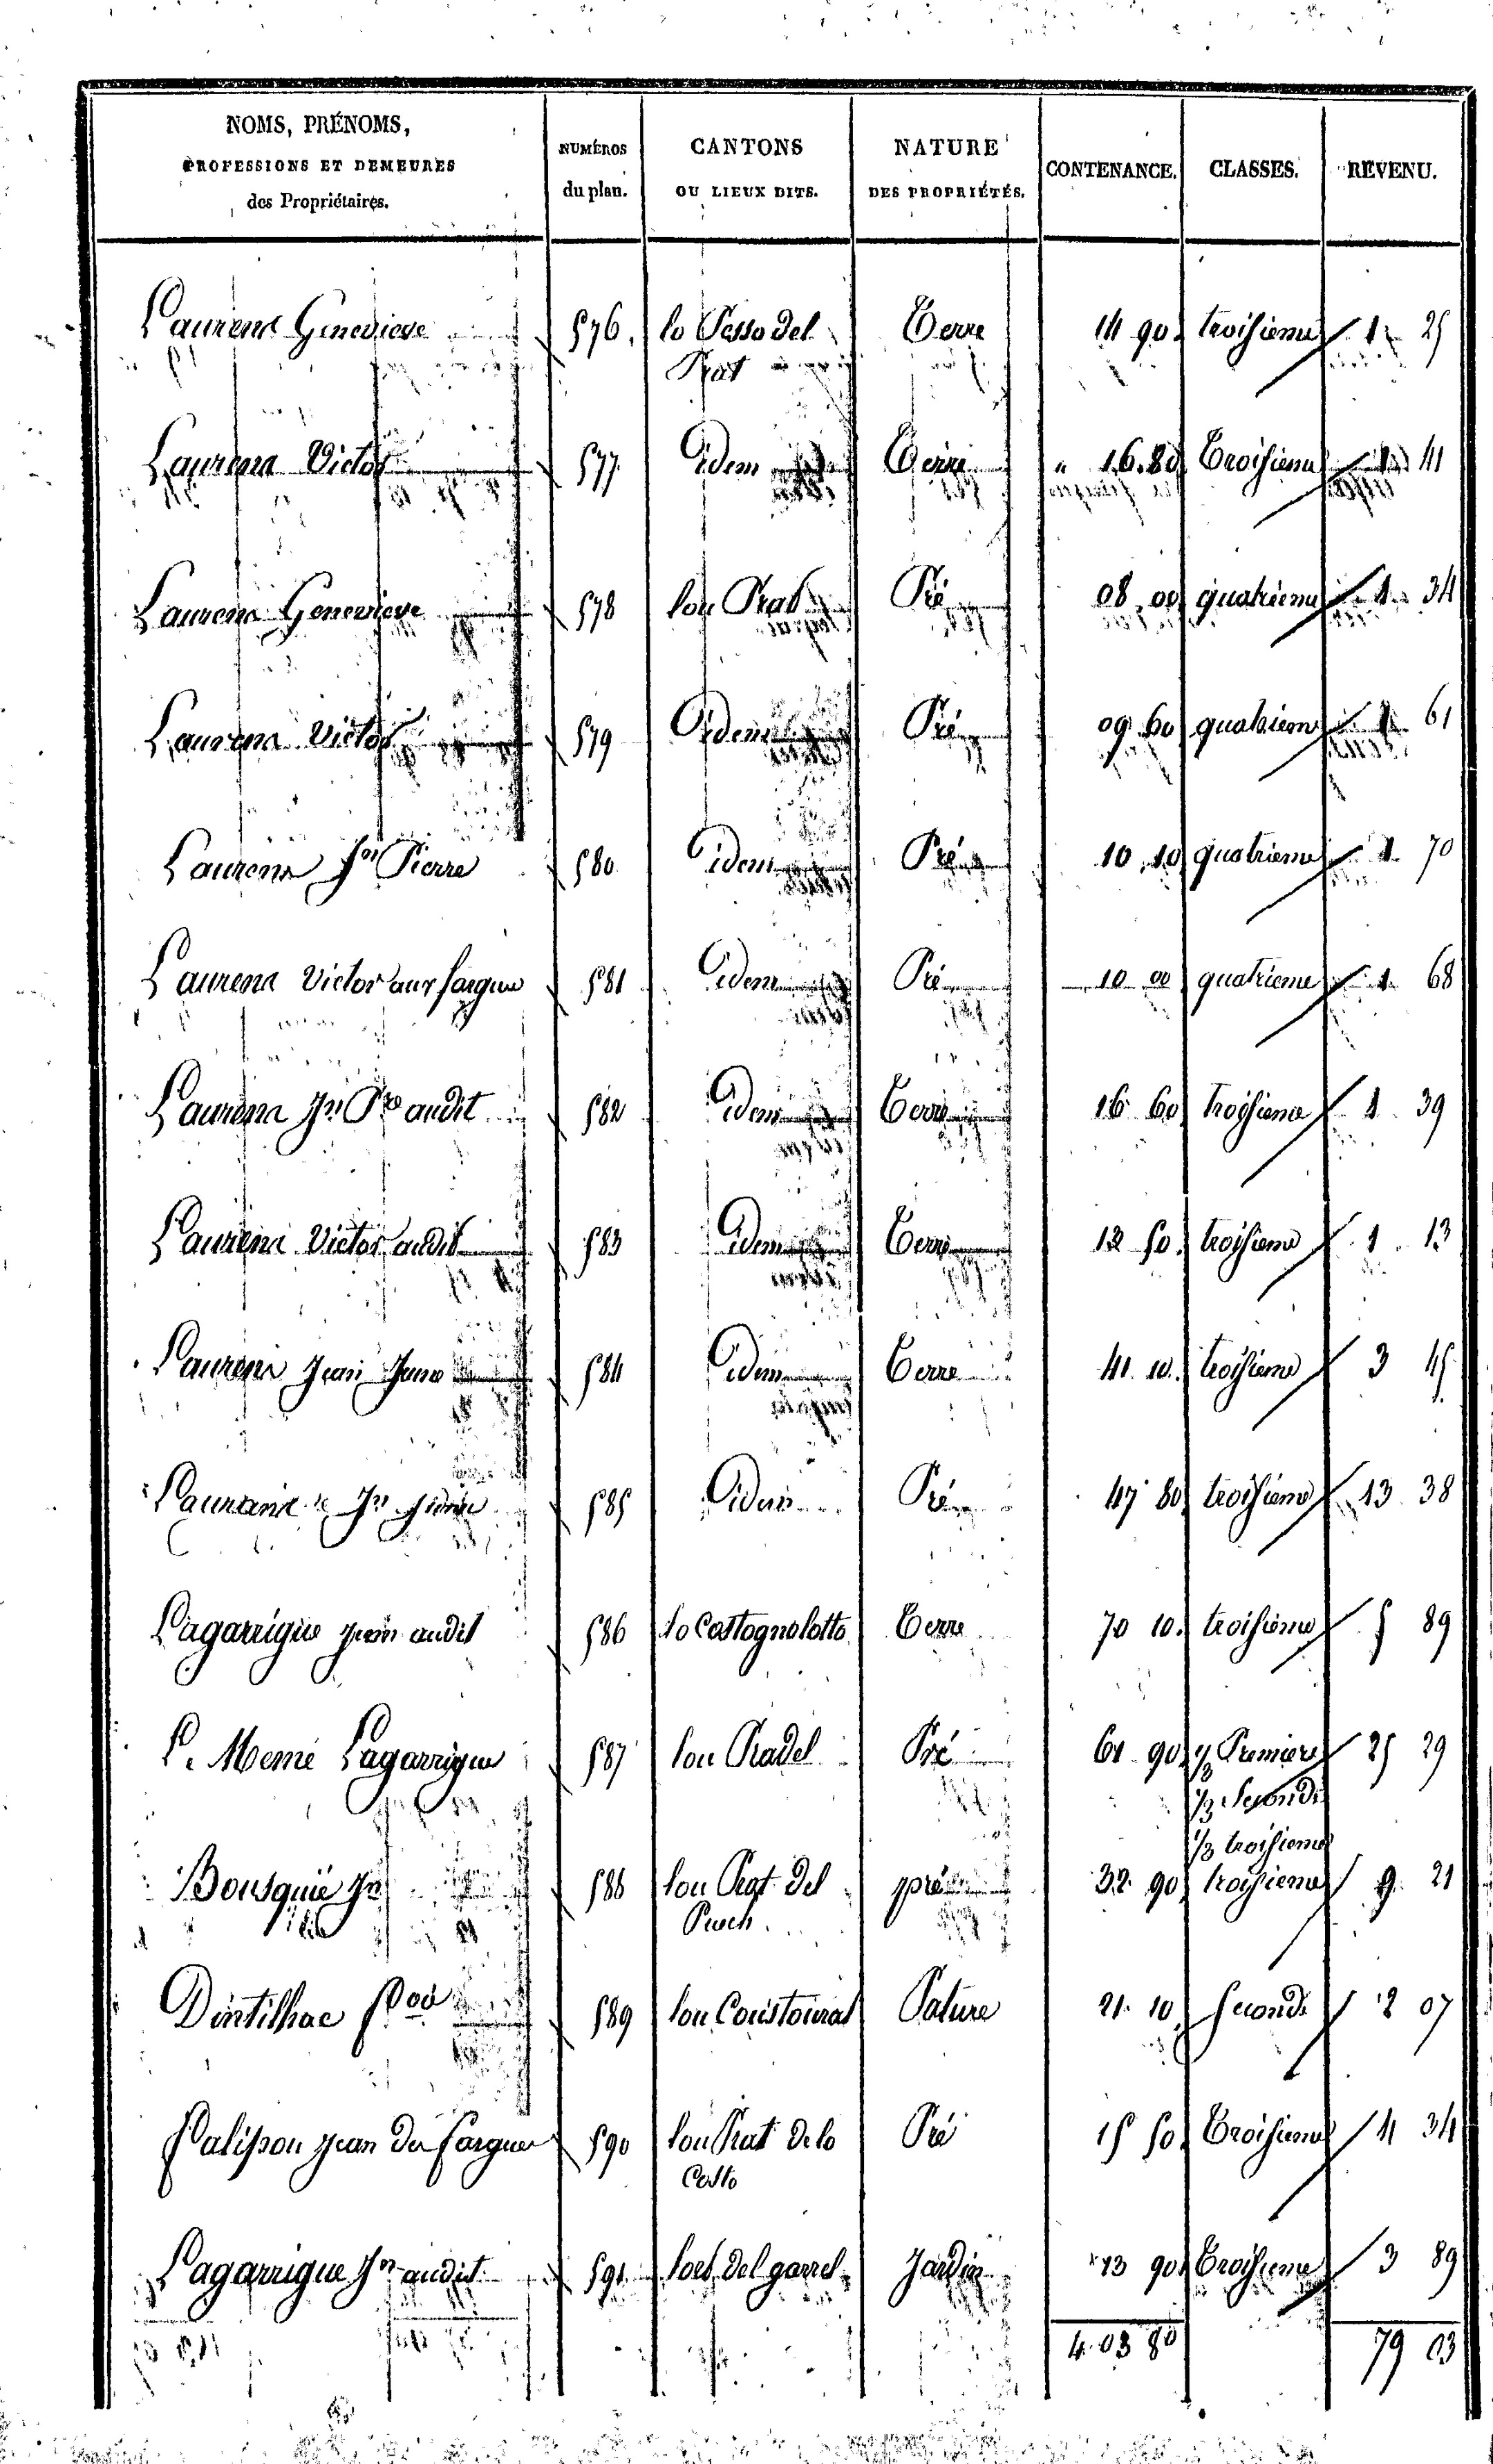 NOMS, PRÉNOMS,
PROFESSIONS ET DEMEURES
des Propriétaires.
NUMÉROS
du plan.
CANTONS
OU LIEUX DITS.
NATURE
DES PROPRIÉTÉS.
CONTENANCE.
CLASSES.
REVENU.
Laurens Genevieve 576 lo Pesso del Terre 14 90 troisieme 1 25
Prat
Laurens Victor 577 idem Terre " 16.80 Troisieme 1 41
Laurens Genevieve 578 lou Prat Pré 08 00 quatrieme 1 34
Laurens Victor 579 idem Pré 09 60 quatrieme 1 61
Laurens Jn Pierre 580 idem Pré 10 10 quatrieme 1 70
Laurens Victor aux fargues 581 idem Pré 10 00 quatrieme 1 68
Laurens Jn Pre audit 582 idem Terre 16 60 troisieme 1 39
Laurens Victor audit 583 idem Terre 12 50 troisieme 1 13
Laurens Jean 584 idem Terre 41 10 troisieme 3 45
Laurens Jn 585 idem Pré 47 80 troisieme 13 38
Lagarrigue jean audit 586 lo Costognolotto Terre 70 10 troisieme 5 89
Le Meme Lagarrigue 587 lou Pradel Pré 61 90 1/3 Premiere 25 29
1/3 Seconde
1/3 troisieme
Bousquié Jn 588 lou Prat del pré 32 90 troisieme 9 21
Puech
Dintilhac 589 lou Coustoural Pature 21 10 Seconde 2 07
Palisson jean des fargues 590 lou Prat de lo Pré 15 50 Troisieme 4 34
Costo
Lagarrigue Jn audit 591 lort del garrel Jardin 13 90 Troisieme 3 89
4 03 80 79 03